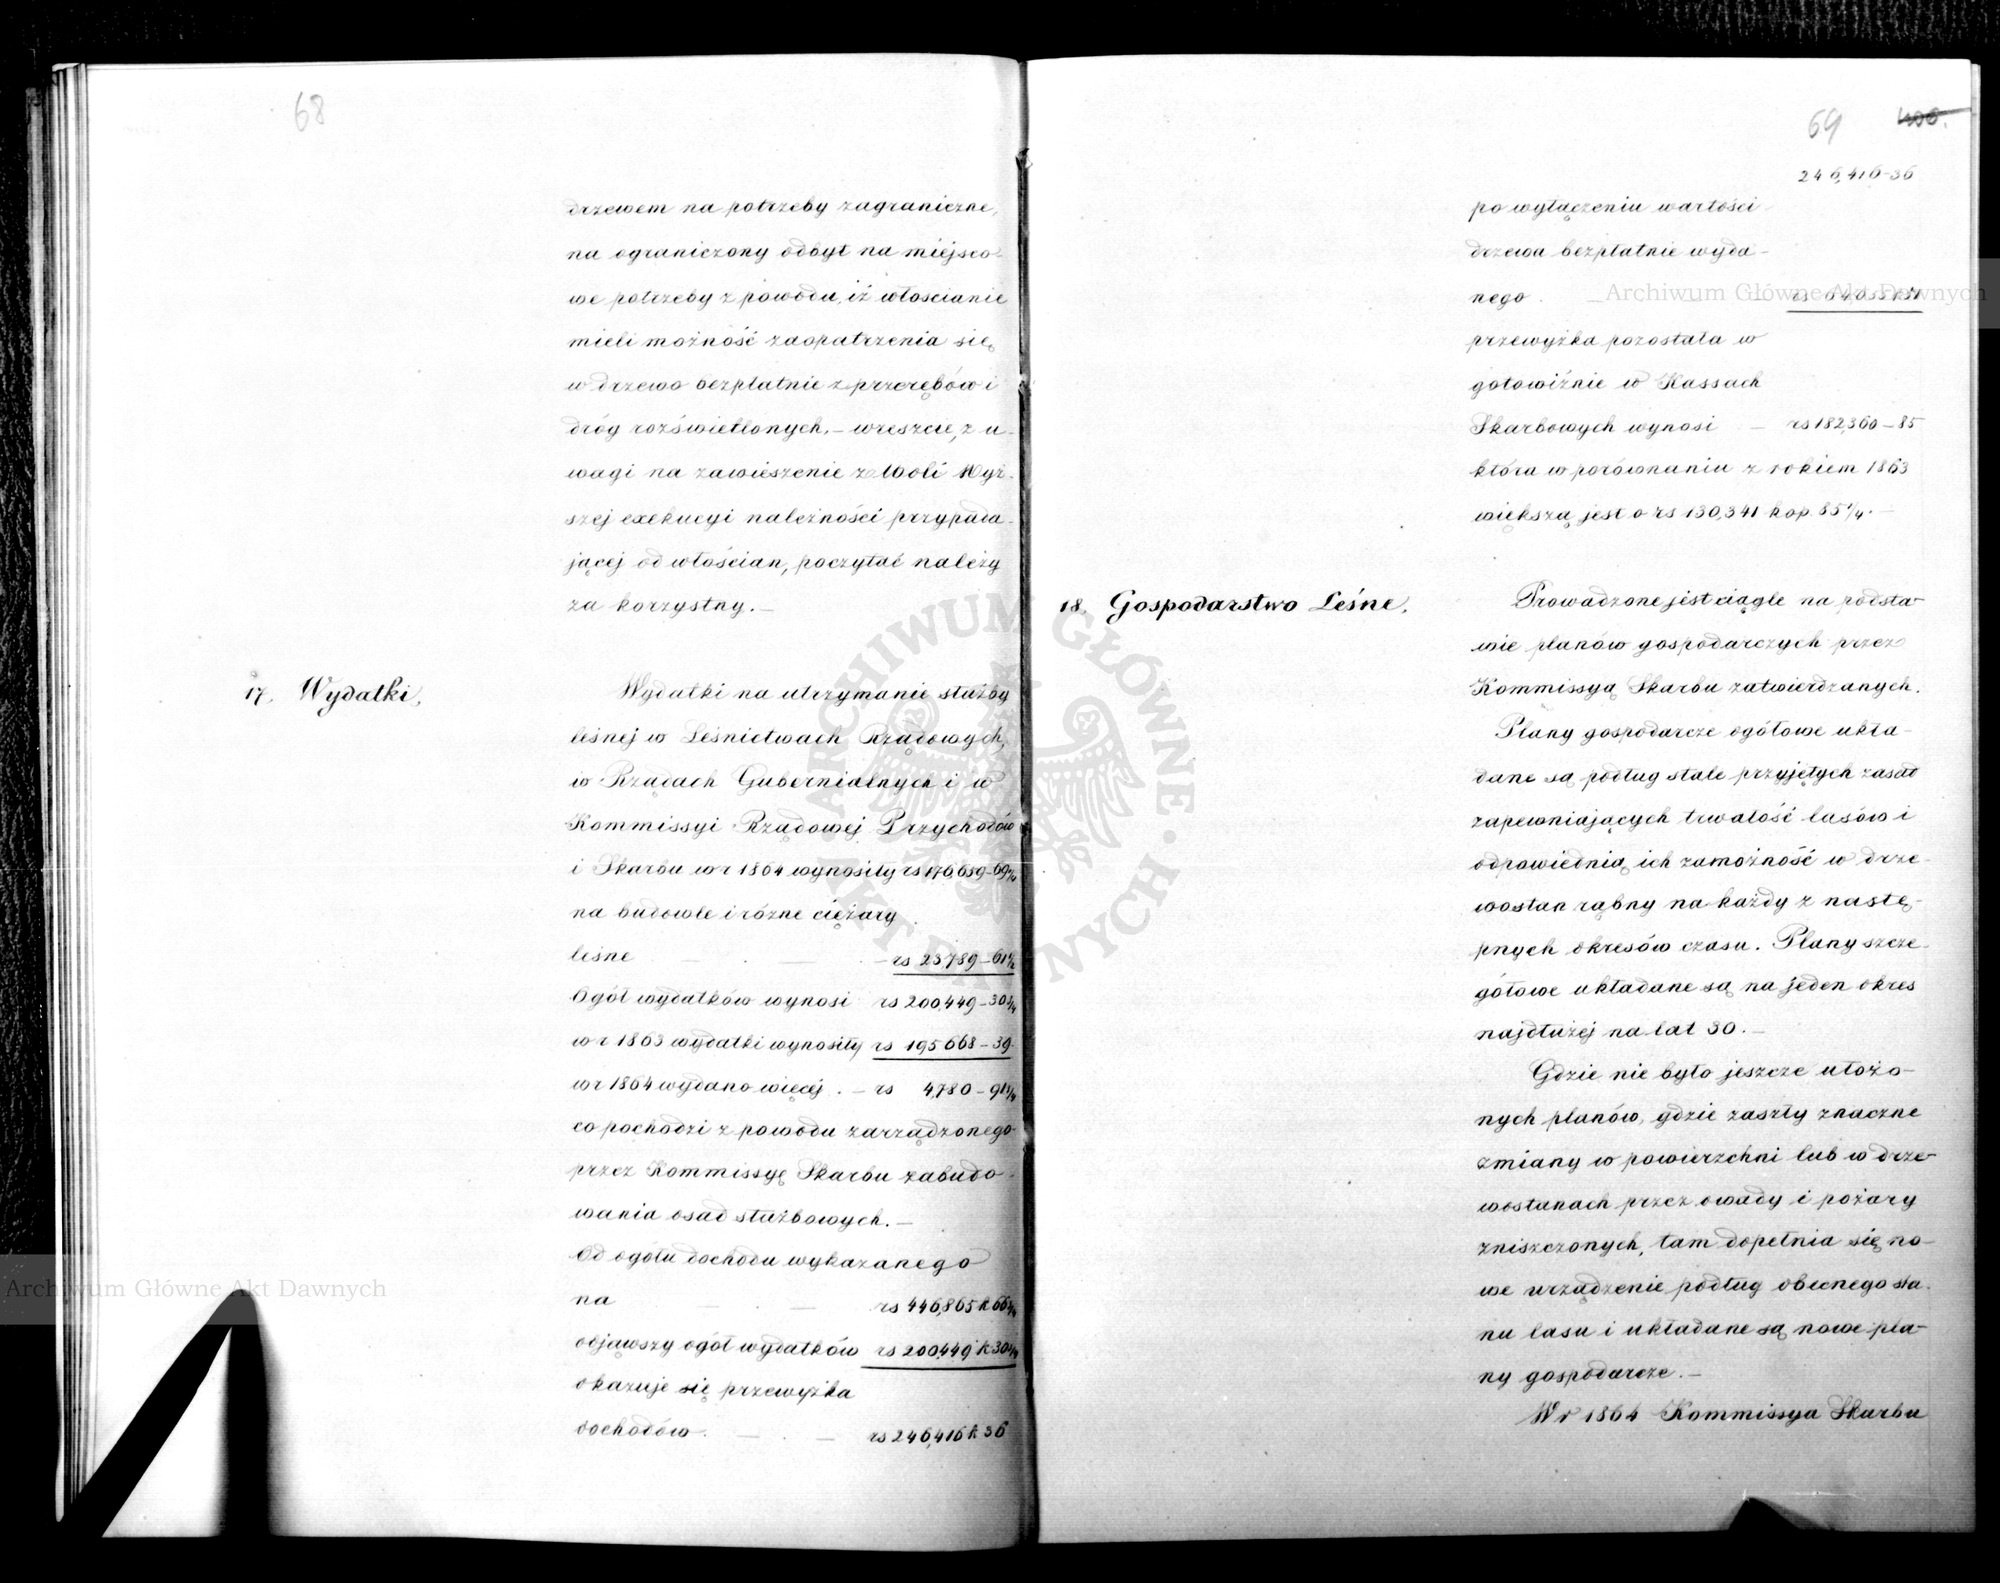 68
drzewem na potrzeby zagraniczne,
na ograniczony odbyt na miejsco-
we potrzeby z powodu, iż włoscianie
mieli możność zaopatrzenia się
w drzewo bezpłatnie z przerębów i
dróg rozświetlonych, – wreszcie, z u-
wagi na zawieszenie z Woli Wyż-
szej exekucyi należności przypada-
jącej od włościan, poczytać należy
za korzystny. –
17. Wydatki,
Wydatki na utrzymanie służby
leśnej w Leśnictwach Rządowych,
w Rządach Gubernialnych i w
Kommissyi Rządowej Przychodów
i Skarbu w r 1864 wynosiły rs 176,659–69¾
na budowle i różne ciężary
leśne – – – rs 23,789–61½
Ogół wydatków wynosi rs 200,449–30¼
w r 1863 wydatki wynosiły rs 195,668–39.
w r 1864 wydano więcej . – rs 4,780–91¼
co pochodzi z powodu zarządzonego
przez Kommissyę Skarbu zabudo-
wania osad służbowych. –
Od ogółu dochodu wykazanego
na – – rs 446,865 k 66¼
odjąwszy ogół wydatków rs 200,449 k 30¼
okazuje się przewyżka
dochodów. – – rs 246,416 k 36
69
246,416–36
po wyłączeniu wartości
drzewa bezpłatnie wyda-
nego . – – rs 64,055 k 51
przewyżka pozostała w
gotowiźnie w Kassach
Skarbowych wynosi – rs 182,360–85
która w porównaniu z rokiem 1863
większą jest o rs 130,341 kop. 85¼. –
18. Gospodarstwo Leśne,
Prowadzone jest ciągle na podsta-
wie planów gospodarczych przez
Kommissyą Skarbu zatwierdzanych.
Plany gospodarcze ogółowe ukła-
dane są podług stale przyjętych zasad
zapewniających trwałość lasów i
odpowiednią ich zamożność w drze-
wostan rąbny na każdy z nastę-
pnych okresów czasu. Plany szcze-
gółowe układane są na jeden okres
najdłużej na lat 30. –
Gdzie nie było jeszcze ułożo-
nych planów, gdzie zaszły znaczne
zmiany w powierzchni lub w drze-
wostanach przez owady i pożary
zniszczonych, tam dopełnia się no-
we urządzenie podług obecnego sta-
nu lasu i układane są nowe pla-
ny gospodarcze. –
W r 1864 Kommissya Skarbu
Archiwum Główne Akt Dawnych
Archiwum Główne Akt Dawnych